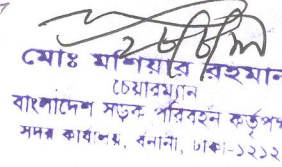 মোঃ মশিয়ার রহমান
চেয়ারম্যান
বাংলাদেশ সড়ক পরিবহন কর্তৃপক্ষ
সদর কার্যালয়, বনানী, ঢাকা-১২১২